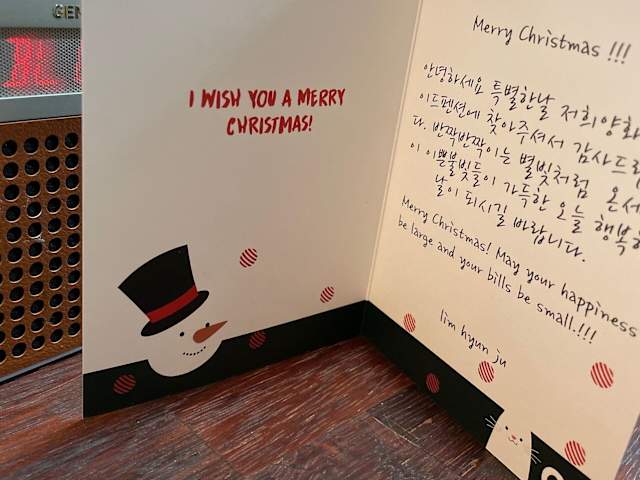 GEN
I WISH YOU A MERRY
CHRISTMAS!
Merry Christmas !!!
안녕하세요 특별한날 저희양화
이드펜션에 찾아주셔서 감사드
다. 반짝반짝이는 별빛처럼 온세
이 이쁜불빛들이 가득한 오늘 행복
날이 되시길 바랍니다.
Merry Christmas! May your happiness
be large and your bills be small.!!!
lim hyun ju